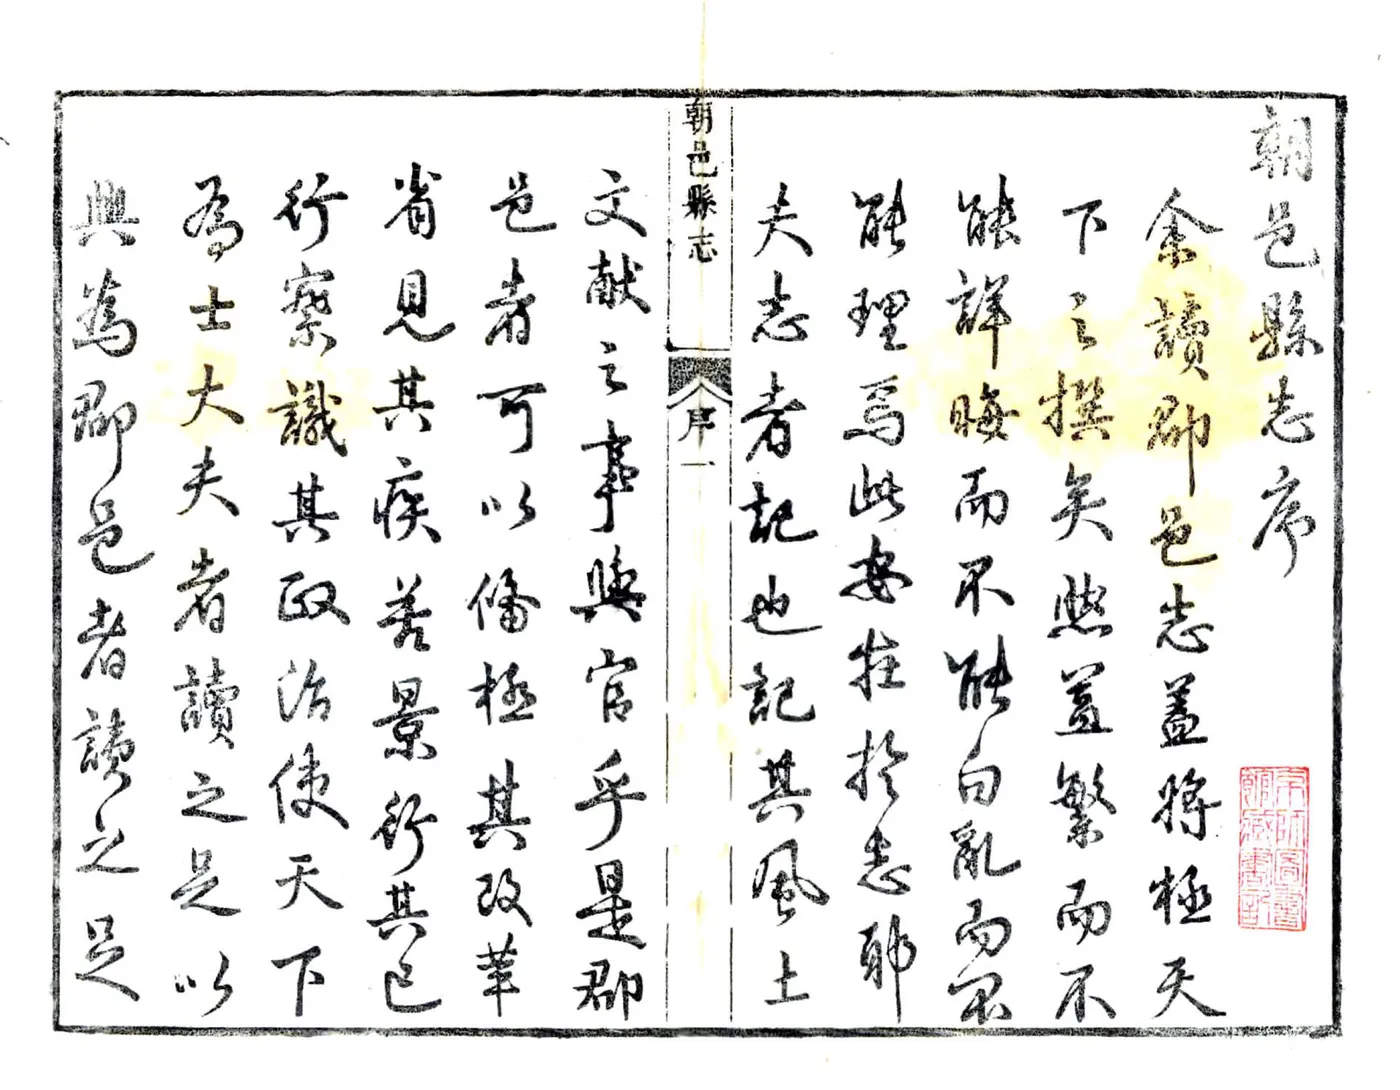 朝邑縣志序
余讀郡邑志蓋將極天
下之撰矣然蓋繁而不
能詳晦而不能白亂而不
能理焉此安在於志耶
夫志者記也記其風土
朝邑縣志
序
一
文献之事與官乎是郡
邑者可以備極其改革
省見其疾苦景行其已
行察識其政治使天下
為士大夫者讀之足以
興為郡邑者讀之足
京師圖書
館藏書記